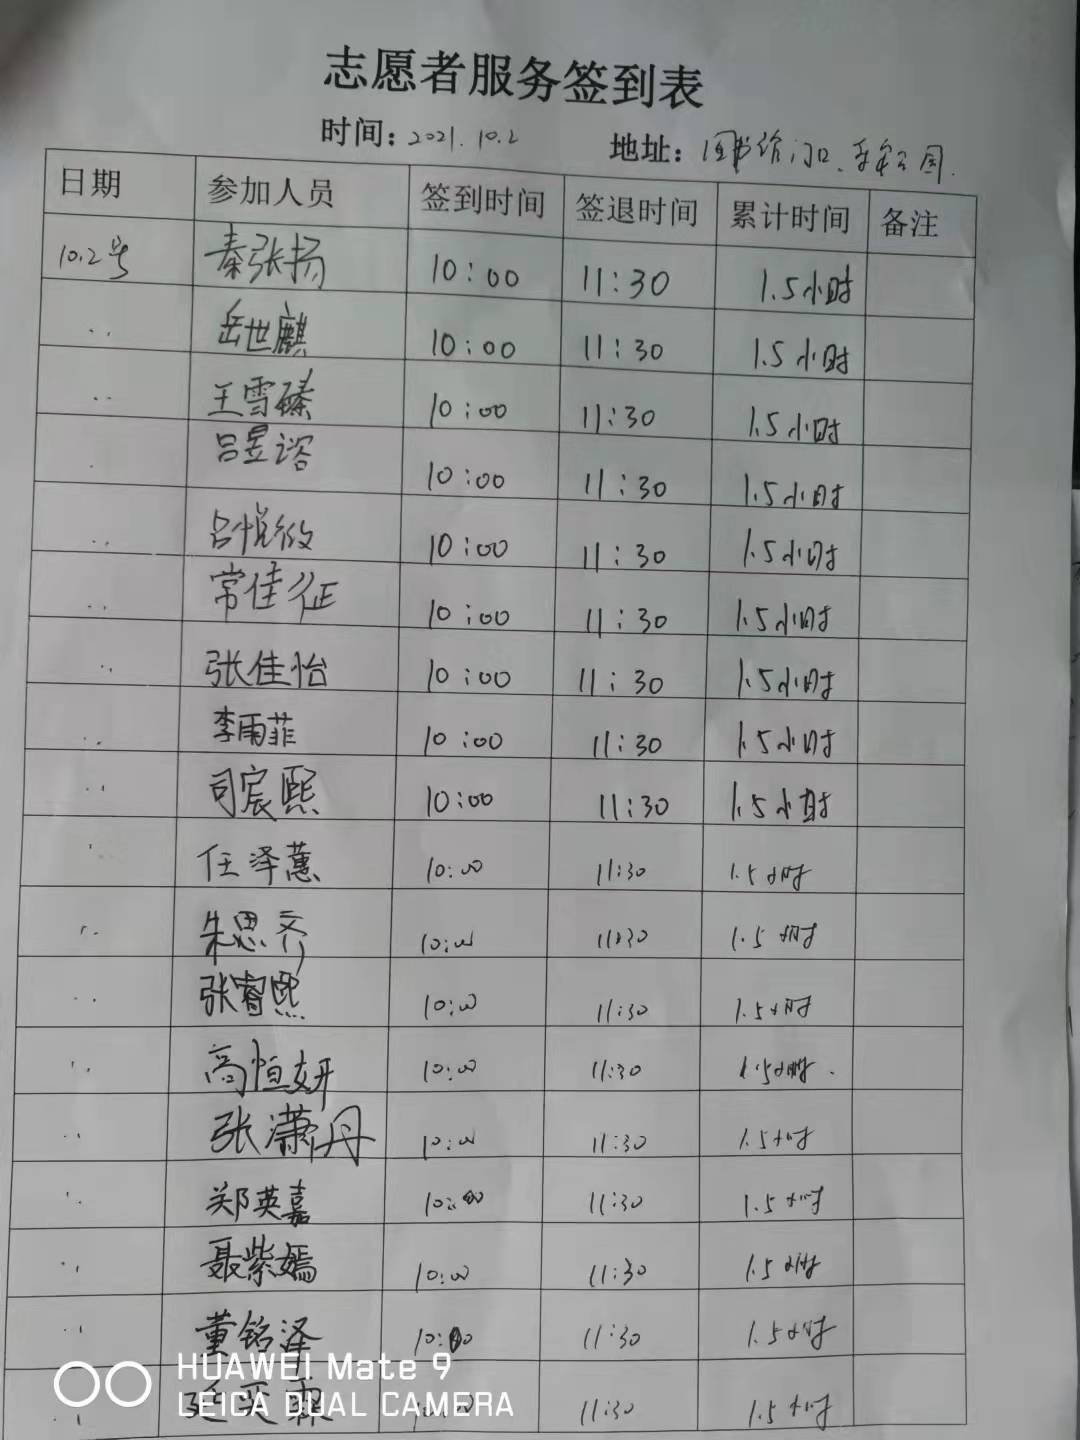 志愿者服务签到表
时间：2021.10.2 地址：图书馆门口、
日期 参加人员 签到时间 签退时间 累计时间 备注
10.2号 秦张扬 10:00 11:30 1.5小时
岳世麒 10:00 11:30 1.5小时
王雪臻 10:00 11:30 1.5小时
吕昱谘 10:00 11:30 1.5小时
吕悦 10:00 11:30 1.5小时
常佳征 10:00 11:30 1.5小时
张佳怡 10:00 11:30 1.5小时
李雨菲 10:00 11:30 1.5小时
司宸熙 10:00 11:30 1.5小时
任泽蕙 10:00 11:30 1.5小时
朱思齐 10:00 11:30 1.5小时
张睿熙 10:00 11:30 1.5小时
高恒妍 10:00 11:30 1.5小时
张潇丹 10:00 11:30 1.5小时
郑英嘉 10:00 11:30 1.5小时
聂紫嫣 10:00 11:30 1.5小时
董铭泽 10:00 11:30 1.5小时
10:00 11:30 1.5小时
HUAWEI Mate 9
LEICA DUAL CAMERA